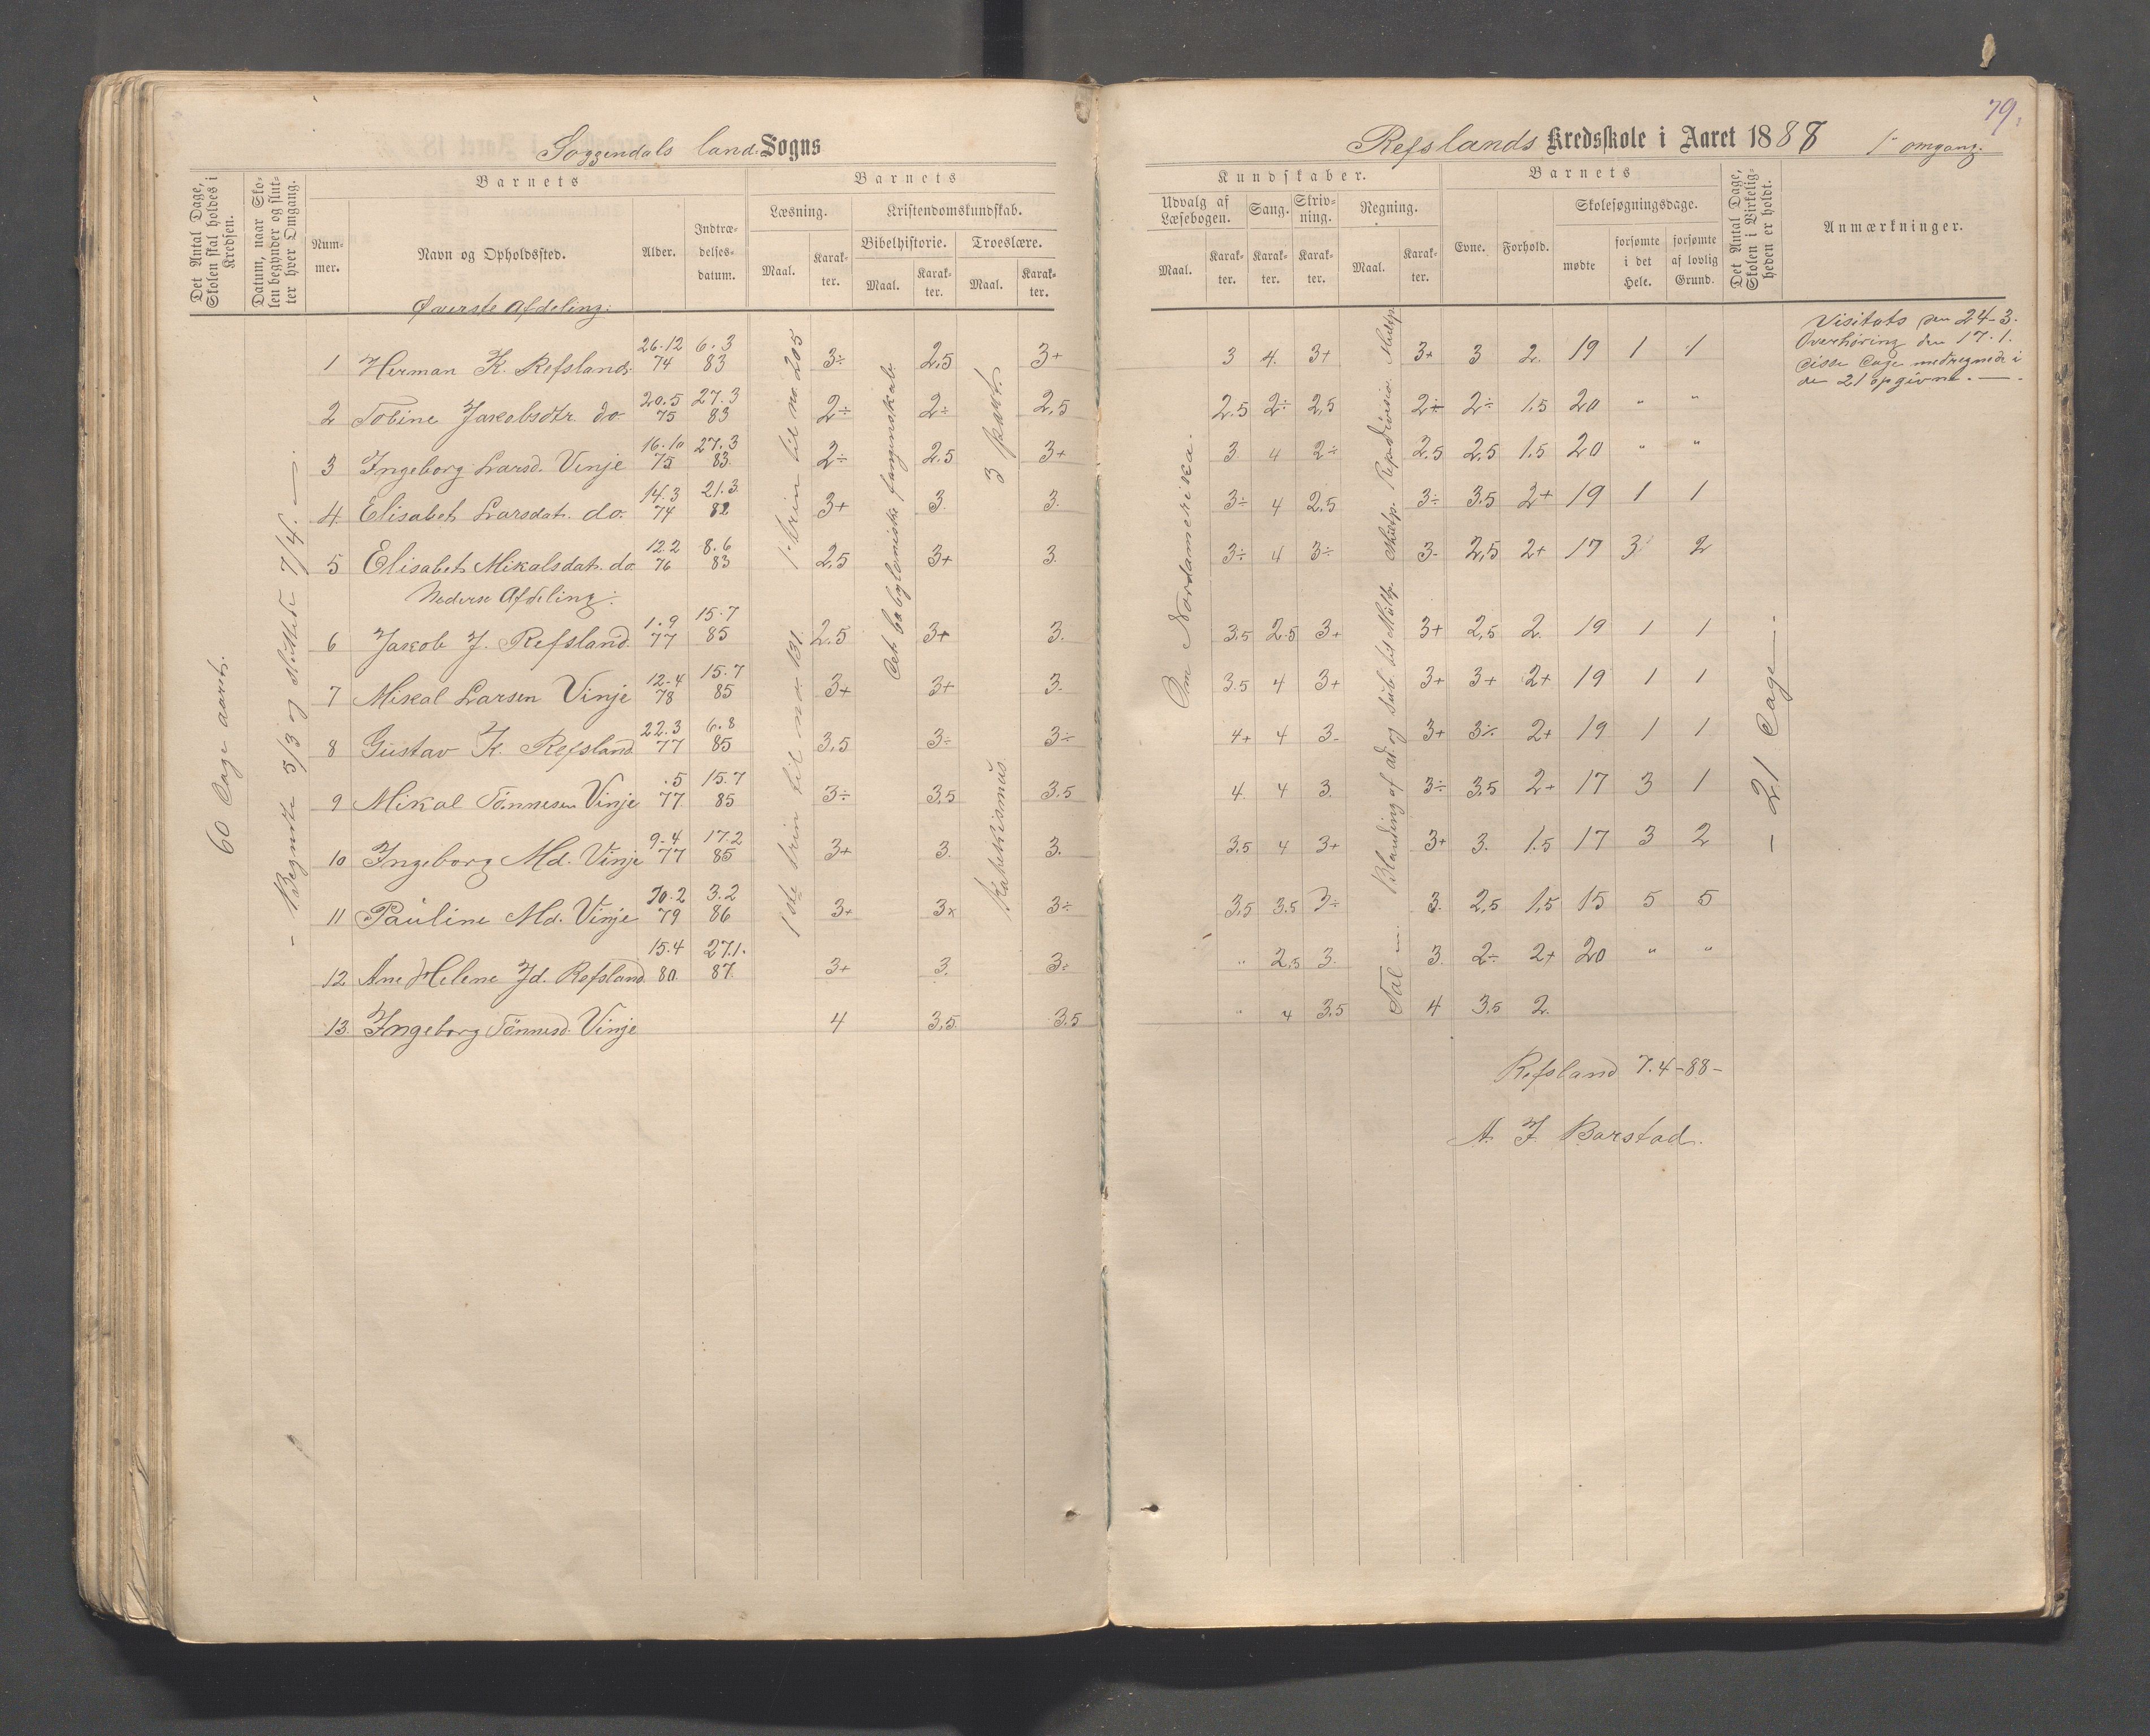 79.
Soggendals land. Sogns
Refslands Kredsskole i Aaret 1888 1ste omgang.
Det Antal Dage, Skolen skal holdes i Kredsen.
Datum, naar Skolen begynder og slutter hver Omgang.
Barnets
Nummer.
Navn og Opholdssted.
Alder.
Indtrædelsesdatum.
Barnets
Læsning.
Maal.
Karakter.
Kristendomskundskab.
Bibelhistorie.
Maal.
Karakter.
Troeslære.
Maal.
Karakter.
Kundskaber.
Udvalg af Læsebogen.
Maal.
Karakter.
Sang.
Karakter.
Skrivning.
Karakter.
Regning.
Maal.
Karakter.
Barnets
Evne.
Forhold.
Skolesøgningsdage.
mødte
forsømte i det Hele.
forsømte af lovlig Grund.
Det Antal Dage, Skolen i Virkeligheden er holdt.
Anmærkninger.
60 Dage aarl.
- Begyndte 5/3 og sluttede 7/4. -
Øverste Afdeling:
1 Herman K. Refsland. 26.12 74 6.3 83 3÷ 2,5 3+ 3 4. 3+ 3+ 3 2. 19 1 1
2 Tobine Jakobsdtr. do. 20.5 75 27.3 83 2÷ 2÷ 2,5 2.5 2÷ 2,5 2÷ 2÷ 1,5 20 " "
3 Ingeborg Larsd. Vinje 16.10 75 27.3 83. 2÷ 2.5 3+ 3 4 2÷ 2.5 2,5 1.5 20 " "
4 Elisabet Larsdat. do. 14.3 74 21.3 82 3+ 3. 3. 3÷ 4 2,5 3÷ 3.5 2+ 19 1 1
5 Elisabet Mikalsdat. do. 12.2 76 8.6 83 2,5 3+ 3. 3÷ 4 3÷ 3- 2,5 2+ 17 3 2
Nederse Afdeling:
6 Jakob J. Refsland. 1.9 77 15.7 85 2.5 3+ 3. 3.5 2.5 3+ 3+ 2,5 2. 19 1 1
7 Mikal Larsen Vinje 12.4 78 15.7 85 3+ 3+ 3. 3.5 4 3+ 3+ 3+ 2+ 19 1 1
8 Gustav K. Refsland. 22.3 77 6.8 85 3,5 3÷ 3÷ 4+ 4 3- 3+ 3÷ 2+ 19 1 1
9 Mikal Tønnesen Vinje .5 77 15.7 85 3÷ 3,5 3.5 4. 4 3. 3÷ 3,5 2+ 17 3 1
10 Ingeborg Md. Vinje 9.4 77 17.2 85 3+ 3. 3. 3,5 4 3+ 3+ 3. 1.5 17 3 2
11 Pauline Md. Vinje 10.2 79 3.2 86 3+ 3x 3÷ 3,5 3.5 3÷ 3. 2,5 1,5 15 5 5
12 Ane Helene Jd. Refsland. 15.4 80 27.1. 87 3+ 3. 3÷ " 2,5 3. 3. 2÷ 2+ 20 " "
13. Ingeborg Tønnesd. Vinje 4 3,5. 3.5 " 4 3,5 4 3,5 2.
1. trin til no. 205
1ste trin til no. 131.
Det babyloniske fangenskab.
3 part.
Katekismus.
Om Nordamerika.
Blanding af ad. og sub. til Multp.
- 21 Dage -
Visitats den 24-3.
Overhøring den 17.1.
disse Dage medregnede i
de 21 opgivne. -
Refsland 7.4-88-
A. J. Barstad.